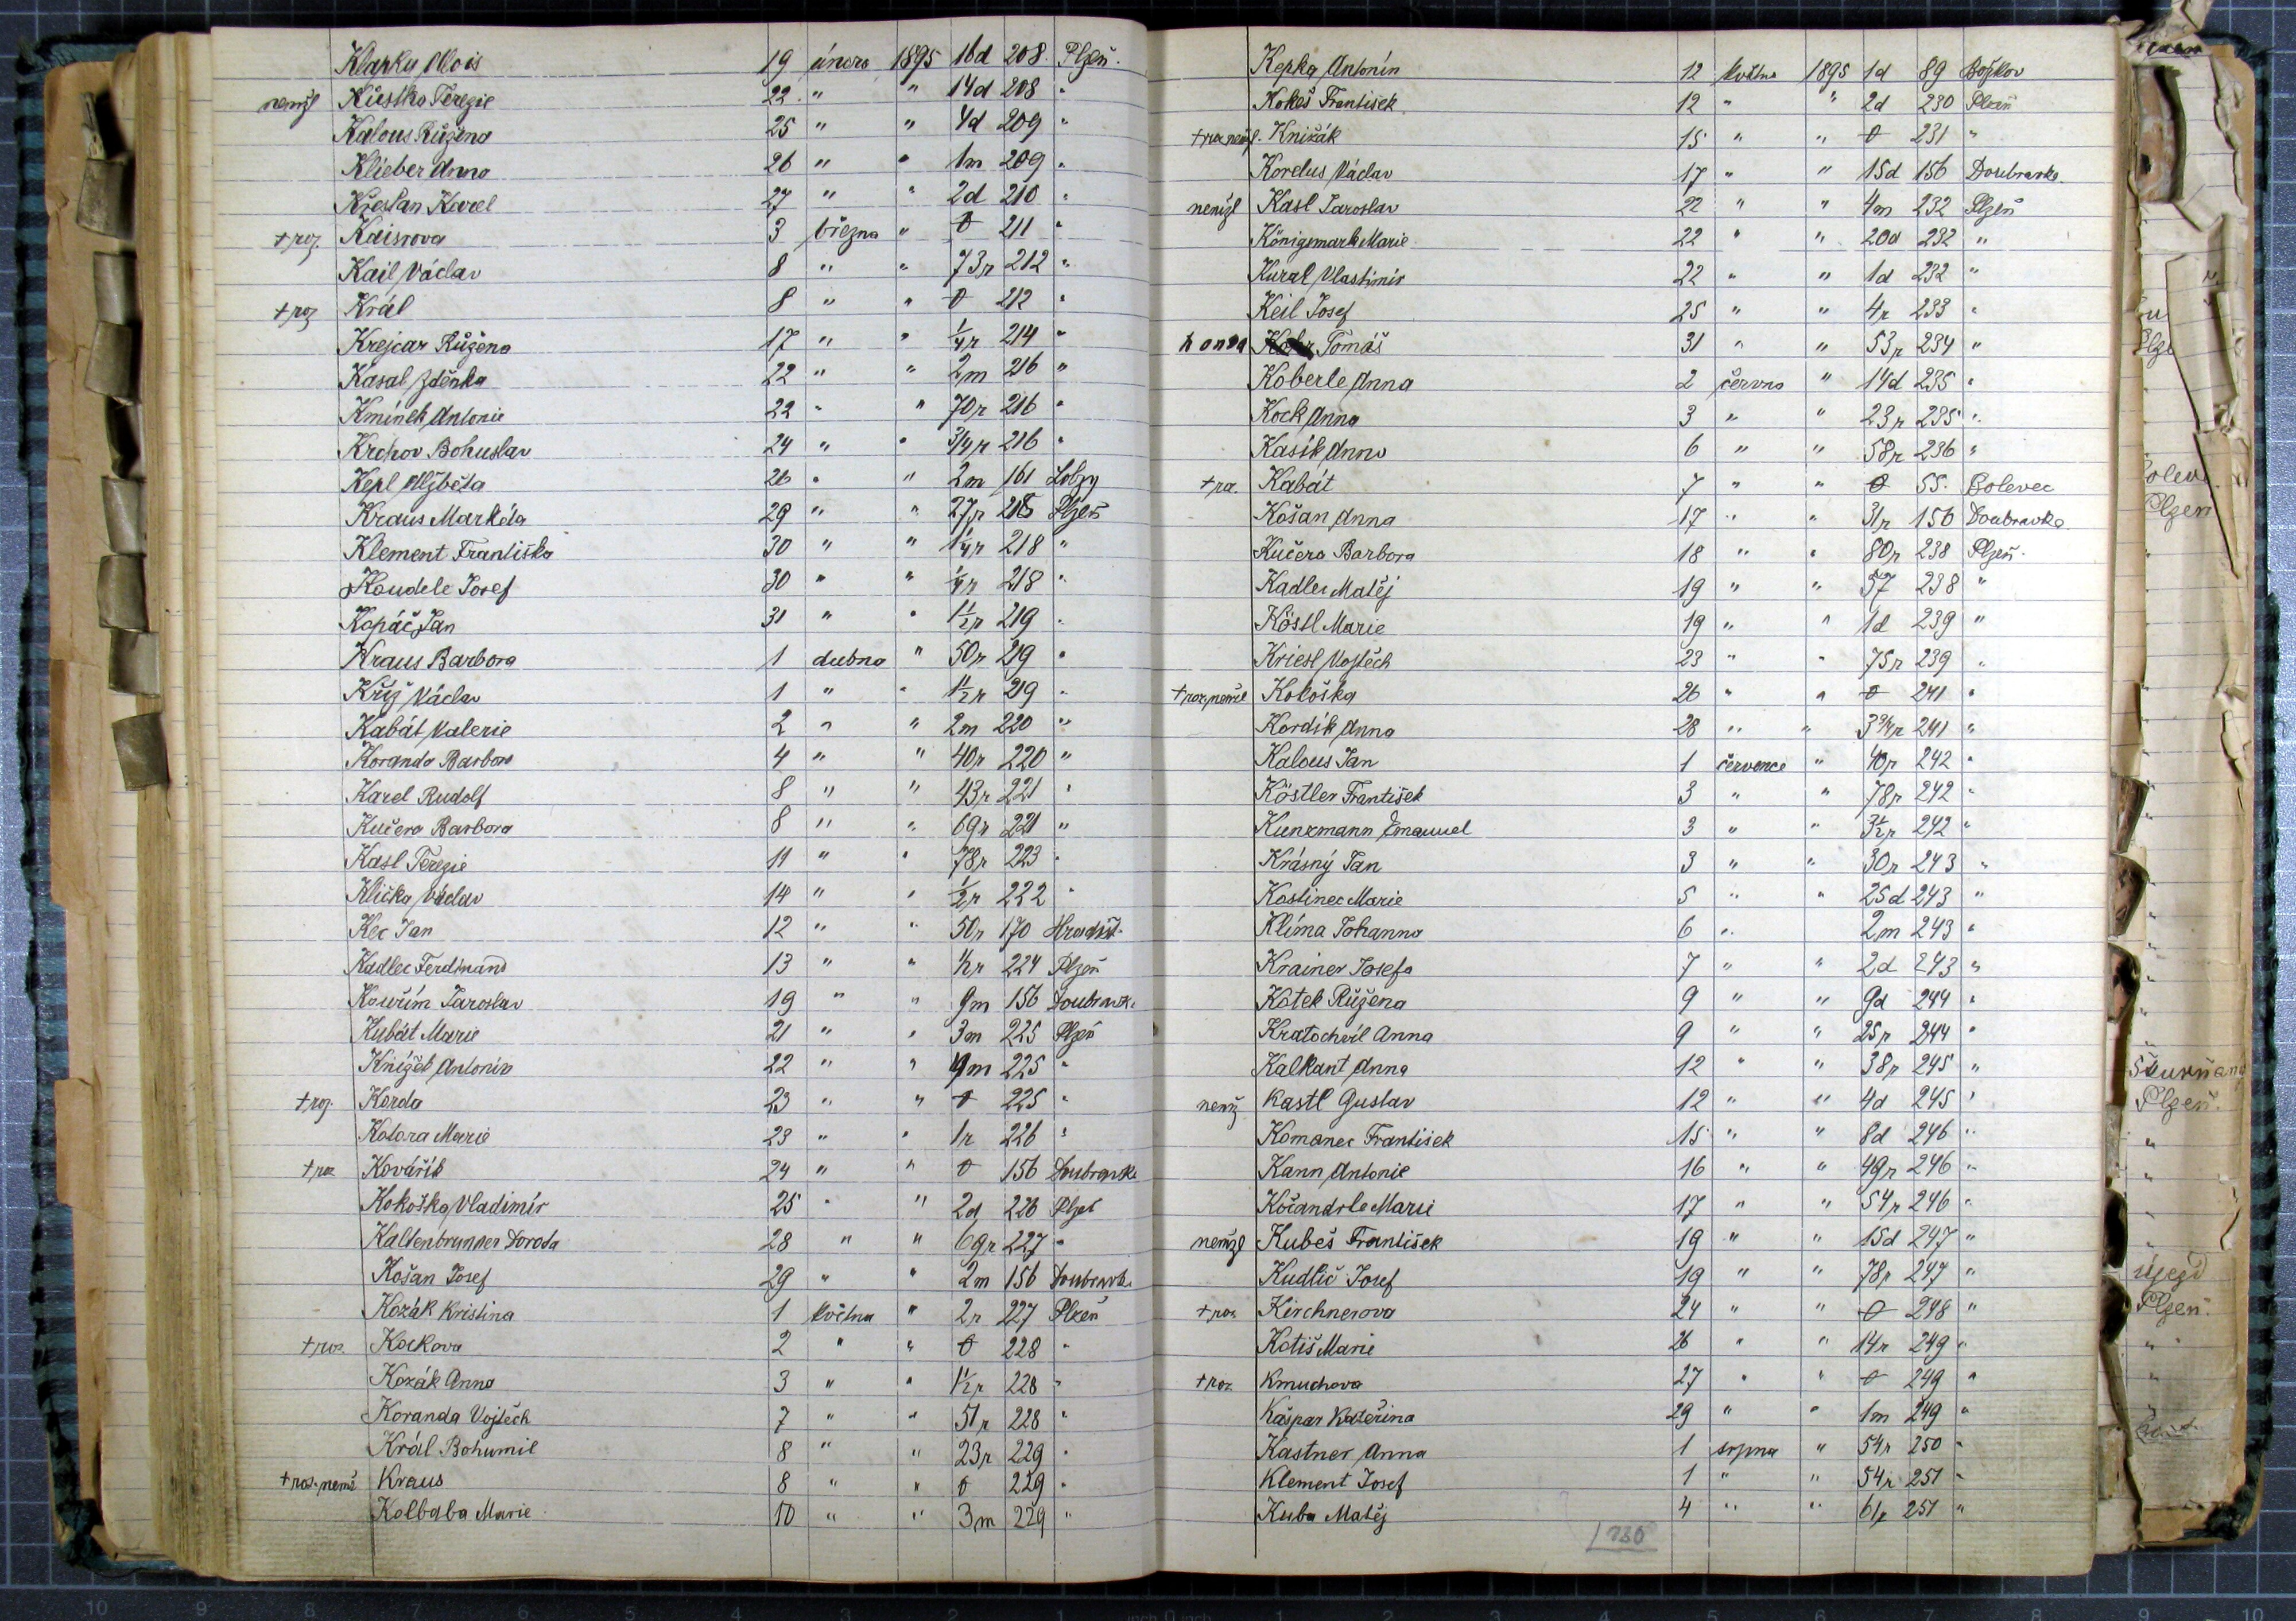 Klapka Alois 19 února 1895 16d 208 Plzeň.
nemžl Kůstka Terezie 22 " " 14d 208 "
Kalous Růžena 25 " " 4d 209 "
Klieber Anna 26 " " 1m 209 "
Křeslan Karel 27 " " 2d 210 "
+roz Kaisrova 3 března " 0 211 "
Kail Václav 8 " " 73r 212 "
+roz Král 8 " " 0 212 "
Krejcar Růžena 17 " " 1/4r 214 "
Kasal Zdeňka 22 " " 2m 216 "
Kmínek Antonie 22 " " 70r 216 "
Krchov Bohuslav 24 " " 3/4r 216 "
Kepl Alžběta 26 " " 2m 161 Lobzy
Kraus Markéta 29 " " 27r 218 Plzeň
Klement Františka 30 " " 1 1/4r 218 "
Koudele Josef 30 " " 1/4r 218 "
Kopáč Jan 31 " " 1 1/2r 219 "
Kraus Barbora 1 dubna " 50r 219 "
Kříž Václav 1 " " 1 1/2r 219 "
Kabát Valerie 2 " " 2m 220 "
Koranda Barbora 4 " " 40r 220 "
Karel Rudolf 8 " " 43r 221 "
Kučera Barbora 8 " " 69r 221 "
Kasl Terezie 11 " " 78r 223 "
Klička Václav 14 " " 1/2r 222 "
Kec Jan 12 " " 50r 170 Hradišt.
Kadlec Ferdinand 13 " " 1/2r 224 Plzeň
Kouřím Jaroslav 19 " " 9m 156 Doubravk.
Kubát Marie 21 " " 3m 225 Plzeň
Knížet Antonín 22 " " 9m 225 "
+roz. Korda 23 " " 0 225 "
Kotora Marie 23 " " 1r 226 "
+roz Kovářík 24 " " 0 156 Doubravka
Kokoška Vladimír 25 " " 2d 226 Plzeň
Kaltenbrunner Dorota 28 " " 69r 227 "
Košan Josef 29 " " 2m 156 Doubravk.
Kozák Kristina 1 května " 2r 227 Plzeň
+roz. Kockova 2 " " 0 228 "
Kozák Anna 3 " " 1 1/2r 228 "
Koranda Vojtěch 7 " " 51r 228 "
Král Bohumil 8 " " 23r 229 "
+roz. nemž Kraus 8 " " 0 229 "
Kolbaba Marie 10 " " 3m 229 "
Kepka Antonín 12 května 1895 1d 89 Božkov
Kokeš František 12 " " 2d 230 Plzeň
+roz nemžl. Knižák 15 " " 0 231 "
Kordus Václav 17 " " 15d 156 Doubravka
nemžl Kasl Jaroslav 22 " " 4m 232 Plzeň
Königsmark Marie 22 " " 20d 232 "
Kural Vlastimír 22 " " 1d 232 "
Keil Josef 25 " " 4r 233 "
Tomáš 31 " " 53r 234 "
Koberle Anna 2 června " 14d 235 "
Kock Anna 3 " " 23r 235 "
Kasík Anna 6 " " 58r 236 "
+roz. Kabát 7 " " 0 55. Bolevec
Košan Anna 17 " " 31r 156 Doubravka
Kučera Barbora 18 " " 80r 238 Plzeň.
Kadlec Matěj 19 " " 57 238 "
Köstl Marie 19 " " 1d 239 "
Kriesl Vojtěch 23 " " 75r 239 "
+roz, nemžl Kokoška 26 " " 0 241 "
Kordík Anna 28 " " 3 3/4r 241 "
Kalous Jan 1 července " 40r 242 "
Köstler František 3 " " 78r 242 "
Kunzmann Emanuel 3 " " 3 1/2r 242 "
Krásný Jan 3 " " 30r 243 "
Kostinec Marie 5 " " 25d 243 "
Klíma Johanna 6 " 2m 243 "
Krainer Josefa 7 " " 2d 243 "
Kotek Růžena 9 " " 9d 244 "
Kratochvíl Anna 9 " " 25r 244 "
Kalkant Anna 12 " " 38r 245 "
nemž Kastl Gustav 12 " " 4d 245 "
Komanec František 15 " " 8d 246 "
Kann Antonie 16 " " 49r 246 "
Kočandrle Marie 17 " " 54r 246 "
nemžl Kubeš František 19 " " 15d 247 "
Kudlič Josef 19 " " 78r 247 "
+roz. Kirchnerova 24 " " 0 248 "
Kotiš Marie 26 " " 14r 249 "
+roz. Kmuchova 27 " " 0 249 "
Kašpar Kateřina 29 " " 1m 249 "
Kastner Anna 1 srpna " 54r 250 "
Klement Josef 1 " " 54r 251 "
Kuba Matěj 4 " " 61r 251 "
Plzeň
Plzeň.
Újezd
Plzeň.